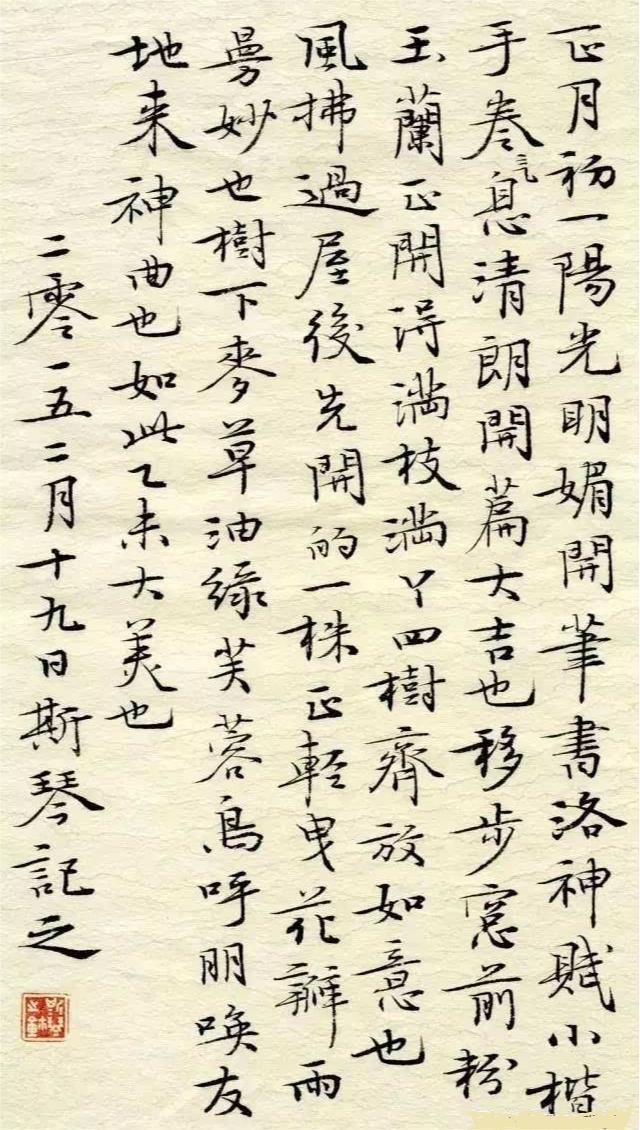 正月初一陽光明媚開筆書洛神賦小楷
手卷氣息清朗開篇大吉也移步窓前粉
玉蘭正開得満枝満丫四樹齊放如意也
風拂過屋後先開的一株正輕曳花瓣雨
曼妙也樹下麥草油綠芙蓉鳥呼朋喚友
地来神曲也如此乙未大美也
二零一五二月十九日斯琴記之